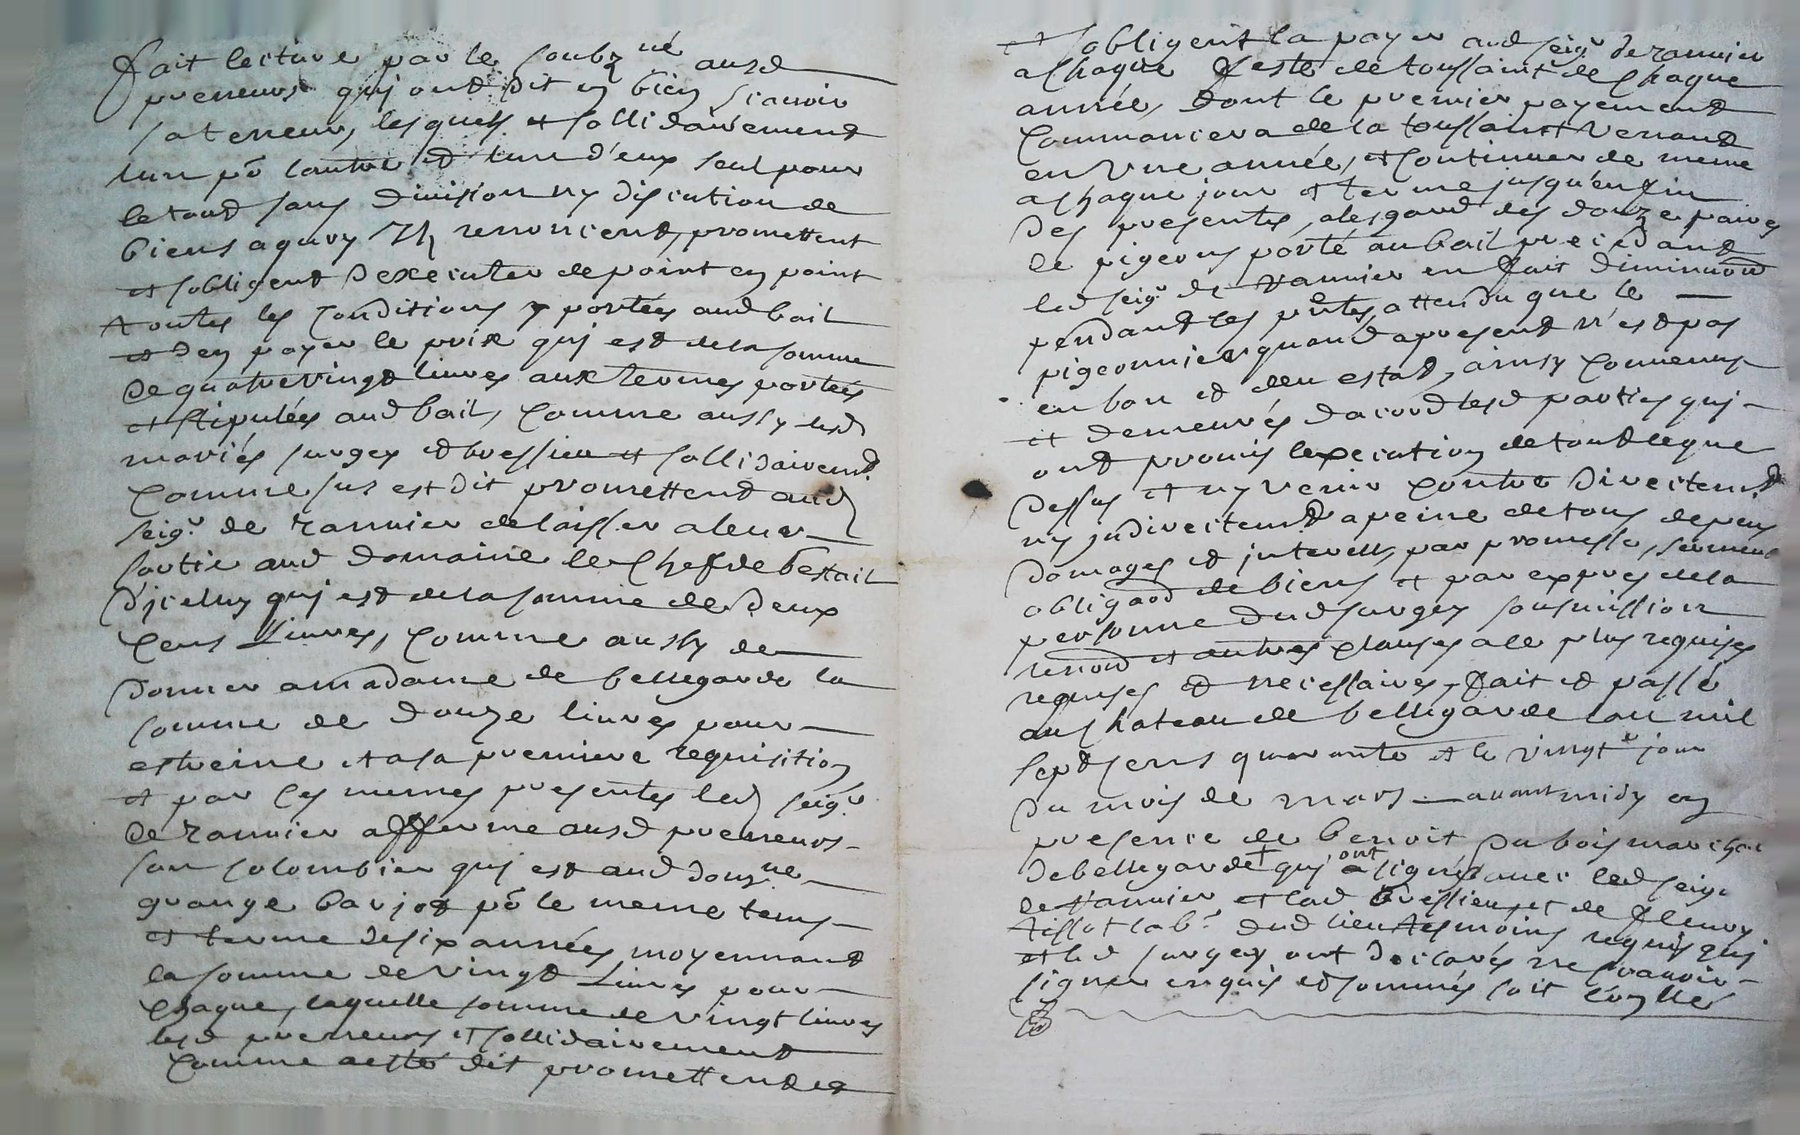 fait lecture par le soubzné ausd
preneurs quj ont dit en bien scavoir
la teneur, lesquels et sollidairement
lun pō lautre et lun d'eux seul pour
le tout sans division ny discution de
biens aquoy Ils renoncent, promettent
et sobligent dexecuter de point en point
toutes les conditions y portées aud bail
et den payer le prix quj est de la somme
de quatrevingt livres aux termes portés
et stipulés aud bail, comme aussy lesd
mariés surgey et bressieu et sollidairemt
comme sus est dit promettent aud
seigr de rannier de laisser a leur
sortie aud domaine le chef de bestail
d'jceluy quj est de la somme de deux
cens Livres, comme aussy de
donner a madame de bellegarde la
somme de douze livres pour
estreine et a sa premiere requisition
et par ces memes presentes led seigr
de rannier afferme ausd preneurs
son colombier quj est aud domne
grange barjot pō le meme tems
et terme de six années moyennant
la somme de vingt Livres pour
chaque, laquelle somme de vingt livres
lesd preneurs et sollidairement
comme a esté dit promettent et
et sobligent la payer aud seigr de rannier
a chaque feste de toussaint de chaque
année, dont le premier payement
commancera de la toussaint venant
en une année, et continuer de meme
a chaque jour et terme jusqu'en fin
des presentes, a lesgard des douze paires
de pigeons porté au bail precedant
led seigr de rannier en fait diminuōn
pendant les pntes, attendu que le
pigeonnier quand apresent n'est pas
en bon et deu estat, ainsy convenus
et demeurés dacord lesd parties quj
ont promis lexecution de tout ceque
dessus et ny venir contre directemt
ny jndirectemt a peine de tous depens
domages et jnterests, par promesse, serment
obligaōn de biens et par expres de la
personne dud surgey sousmission
renonōn et autres clauses a ce plus requises
requises et necessaires, fait et passé
au chateau de bellegarde lan mil
sept cens quarante et le vingte jour
du mois de mars avant midy en
presence de benoit dubois marechal
de bellegarde quj ont signés avec led seigr
de rannier et lad bressieu, et de fleury
tissot labr dud lieu tesmoins requis quj
et led surgey ont declarés ne scavoir
signer enquis et sommés soit